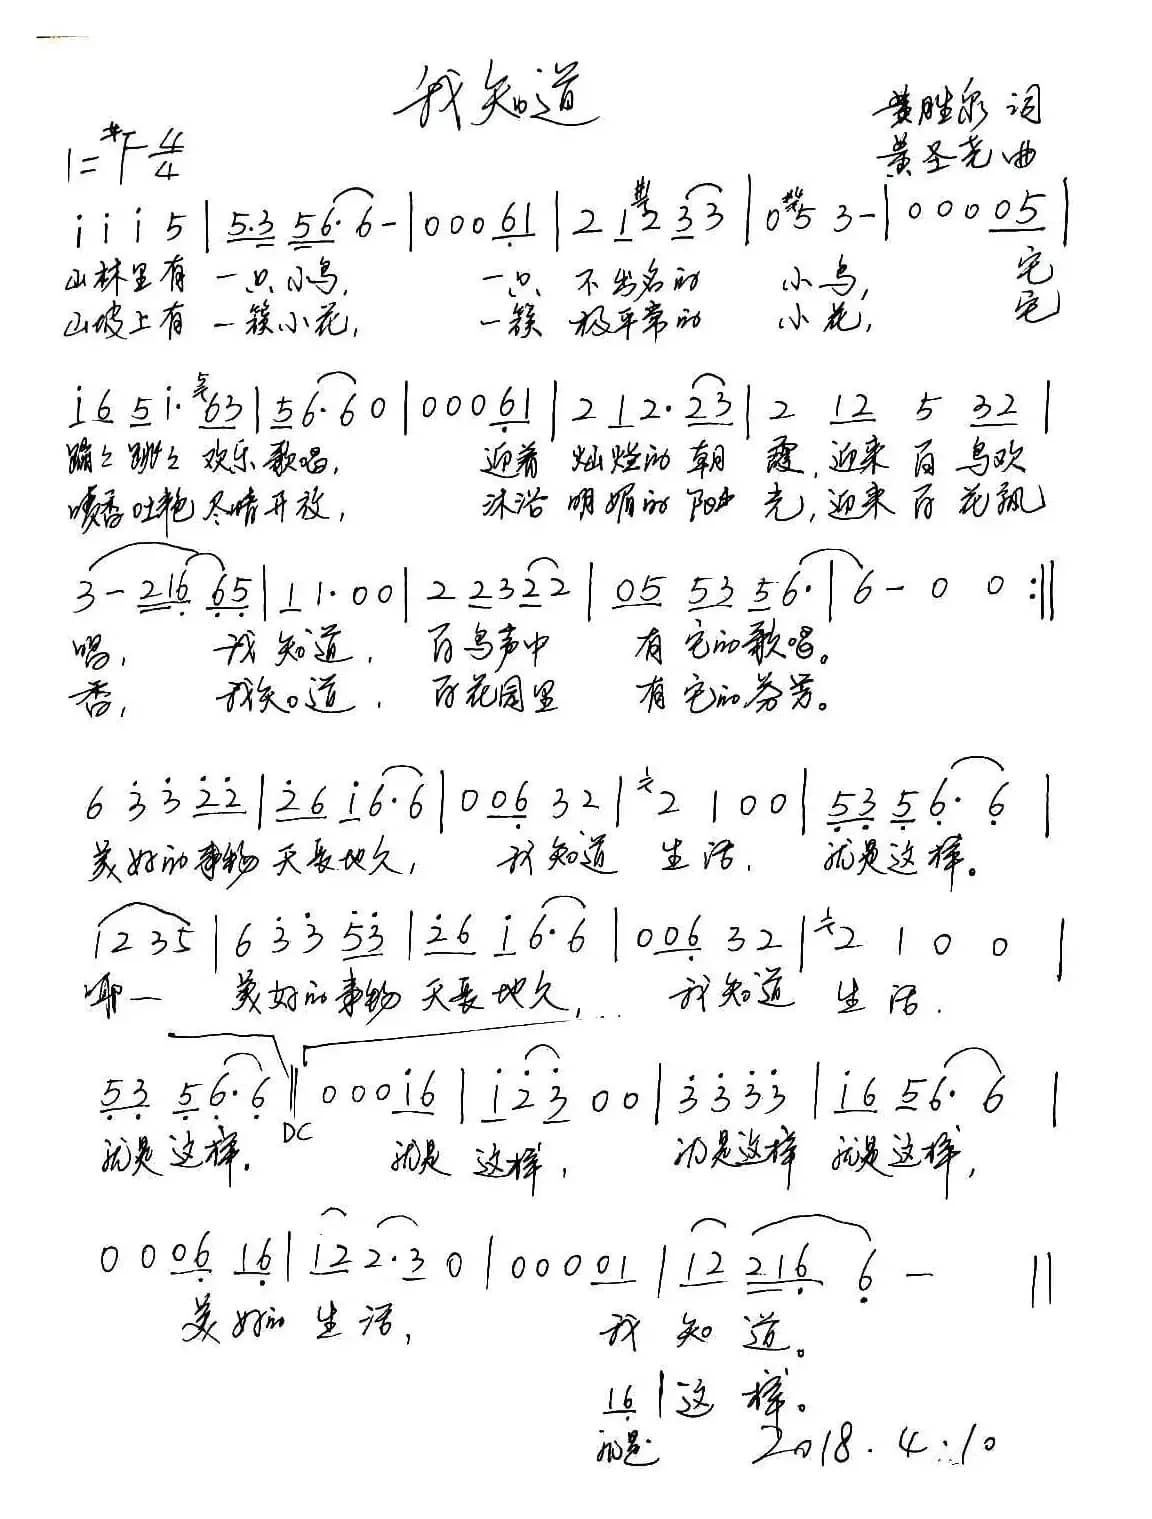 我知道
黄胜泉 词
1=#F 4/4
黄圣尧 曲
i i i 5 | 5.3 56. 6 - | 0 0 0 61 | 2 12 33 | 0 5 3 - | 0 0 0 05 |
山林里有 一只小鸟, 一只 不出名的 小鸟, 它
山坡上有 一簇小花, 一簇 极平常的 小花, 它
i6 5 i. 63 | 56. 6 0 | 0 0 0 61 | 2 12. 23 | 2 12 5 32 |
蹦々跳々 欢乐歌唱, 迎着 灿烂的朝 霞, 迎来 百 鸟欢
喷香吐艳 尽情开放, 沐浴 明媚的阳 光, 迎来 百 花飘
3 - 216 65 | 1 1. 0 0 | 2 2322 | 05 53 56. | 6 - 0 0 :||
唱, 我 知道, 百鸟声中 有 它的歌唱。
香, 我知道, 百花园里 有 它的芬芳。
6 3 3 22 | 26 i6. 6 | 0 06 32 | 2 1 0 0 | 53 56. 6 |
美好的事物 天长地久, 我 知道 生 活, 就是这样。
1235 | 6 3 3 53 | 26 i 6. 6 | 0 06 32 | 2 1 0 0 |
耶一 美好的事物 天长地久, 我知道 生 活,
53 56. 6 || 0 0 0 i6 | i23 0 0 | 3 3 33 | i6 56. 6 |
DC
就是这样。 就是 这样, 就是这样 就是这样,
0 0 06 16 | 12 2. 3 0 | 0 0 0 01 | 12 216 6 - ||
美 好的 生 活, 我 知 道。
16 | 这 样。
就是
2018.4.10